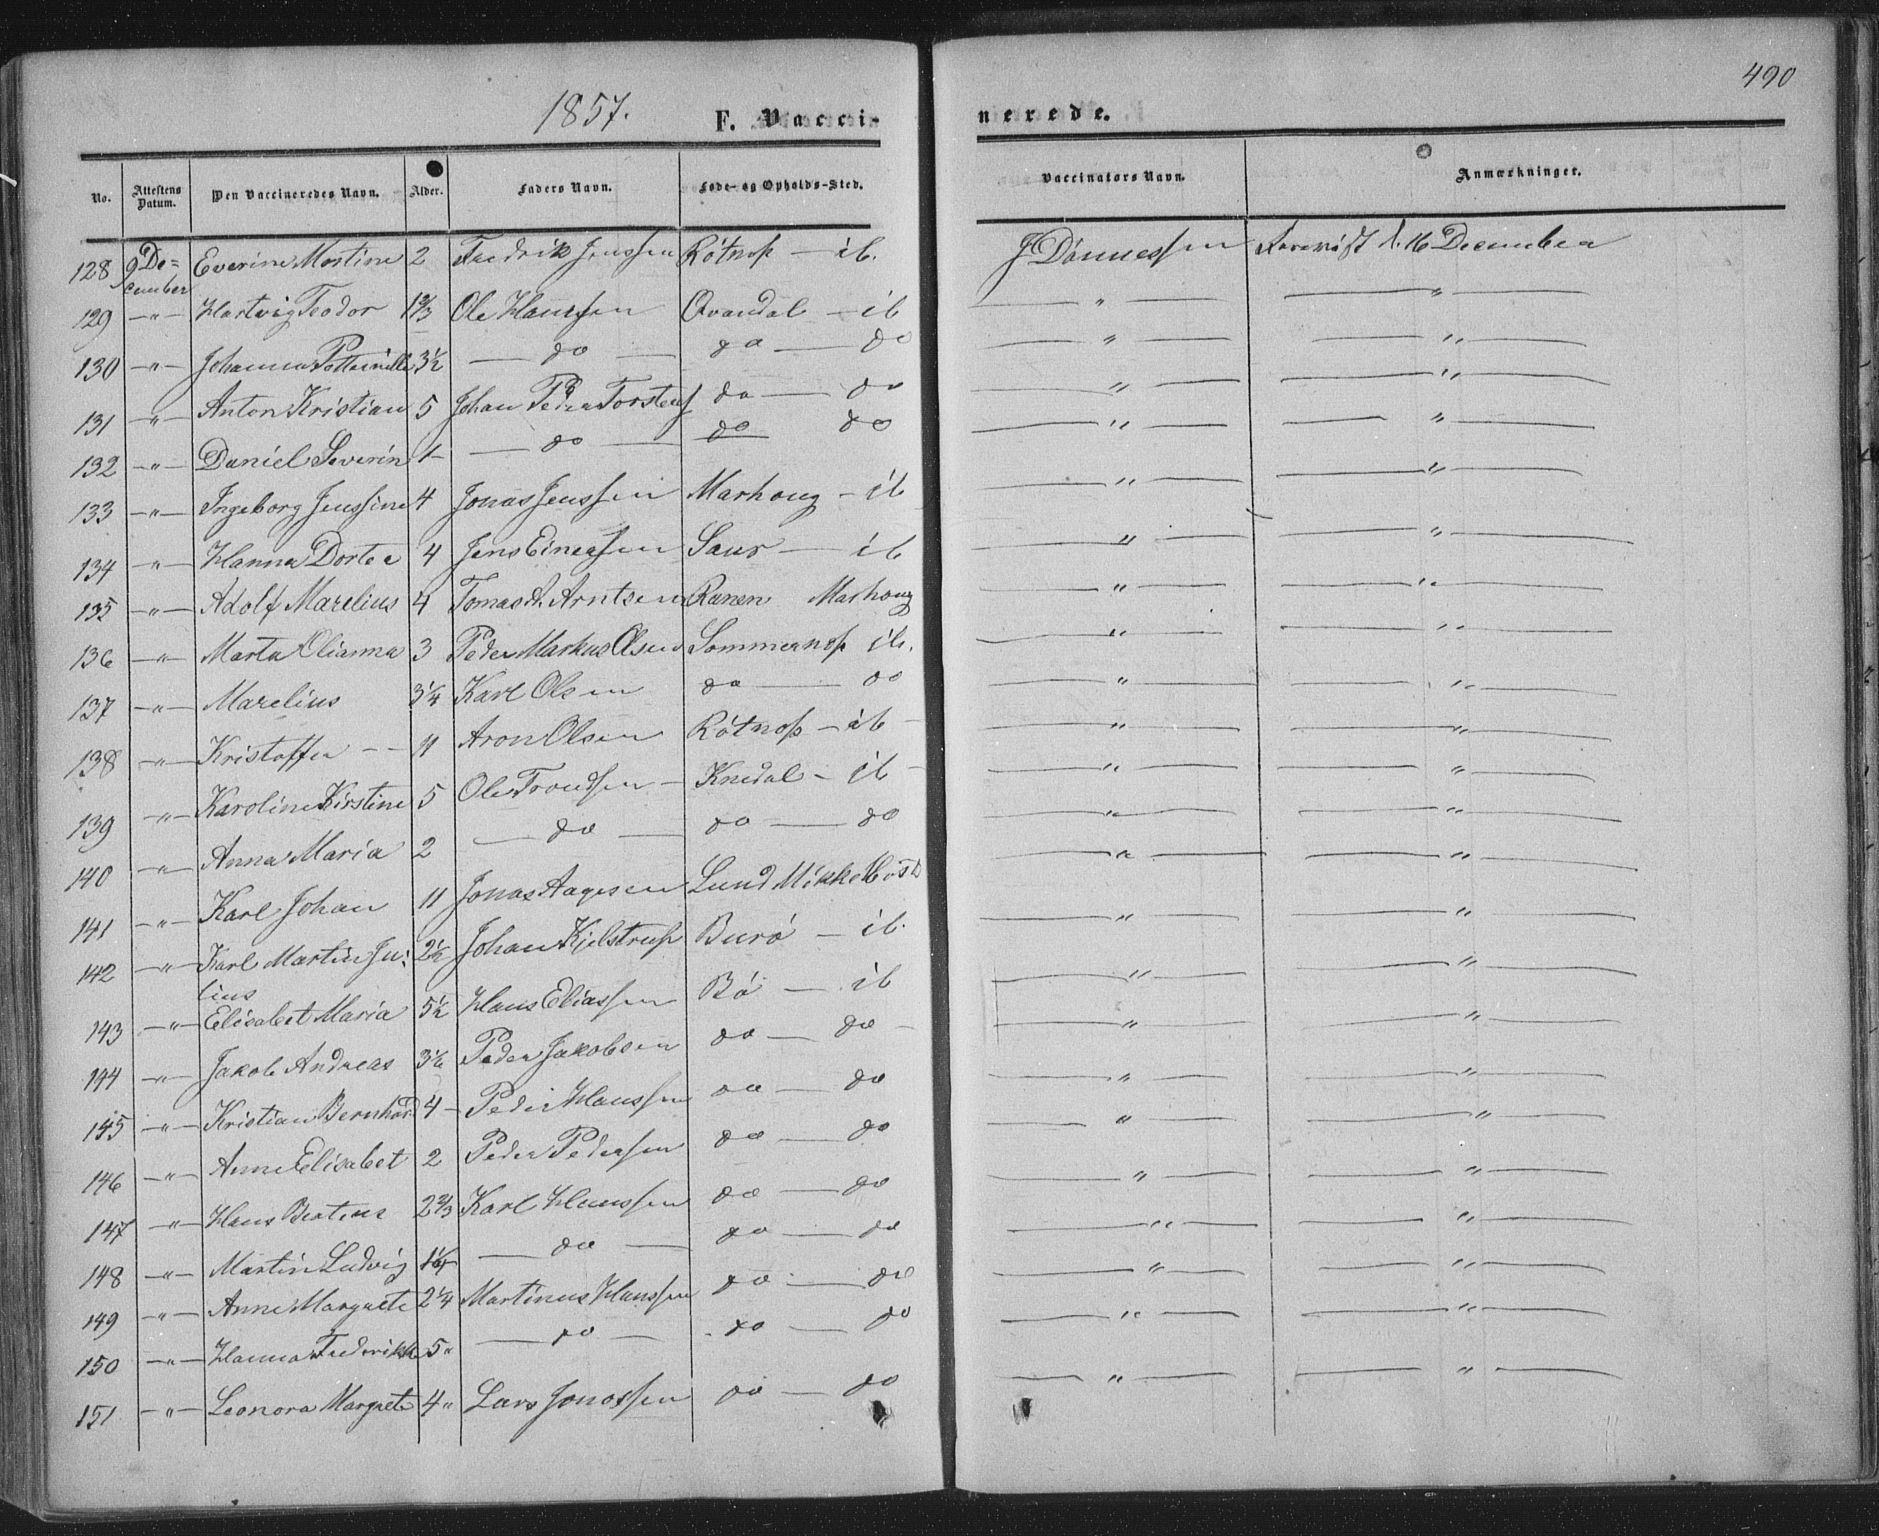 490
1857.
F. Vacci-
nerede.
No. Attestens Datum. Den Vaccineredes Navn. Alder. Faders Navn. Føde- og Opholds-Sted. Vaccinators Navn. Anmærkninger.
128 9 De= cember Everine Mostine 2 Fredrik Jenssen Røtnæs — ib. J Dønnessen d. 16 December
129 —"— Hartvig Teodor 1 2/3 Ole Hanssen Qvandal — ib — " — — " —
130 —"— Johanna 3½ — do — do — do — " — — " —
131 —"— Anton Kristian 5 Johan Peder do — do — " — — " —
132 —"— Daniel Severin 1- — do — do do — " — — " —
133 —"— Ingeborg Jenssine 4 Jonas Jenssen Marhoug — ib — " — — " —
134 —"— Hanna Dortea 4 Jens Saur — ib — " — — " —
135 —"— Adolf Marelius 4 Tomas A. Arntsen Ranen Marhoug — " — — " —
136 —"— Marta Olianna 3 Peder Markus Olsen ib. — " — — " —
137 —"— Marelius 3¼ Karl Olsen do — do — " — — " —
138 —"— Kristoffer -- 11 Aron Olsen Røtnæs — ib — " — — " —
139 —"— Karoline Kirstine 5 Ole — ib — " — — " —
140 —"— Anna Maria 2 — do — do — do — " — — " —
141 —"— Karl Johan 11 Jonas Aagesen Lund — " — — " —
142 —"— Karl Martin Ju= 2½ Johan Kjelstrup Burø — ib. — " — — " —
lius
143 —"— Elisabet Maria 5½ Hans Eliassen Bø — ib — " — — " —
144 —"— Jakob Andreas Peder Jakobsen do — do — " — — " —
145 —"— Kristian Bernhard 4 - Peder Hanssen do — do — " — — " —
146 —"— Anne Elisabet 2 Peder Pedersen do — do — " — — " —
147 —"— Hans 2 Karl Hanssen do — do — " — — " —
148 —"— Martin Ludvig 1¼ — do — do — do — " — — " —
149 —"— Anne Margrete 2¼ Martinus Hanssen do — do — " — — " —
150 —"— Hanna Fredrikke 5" — do — do — do — " — — " —
151 —"— Leonora Margrete 4" Lars Jonassen do — do — " — — " —